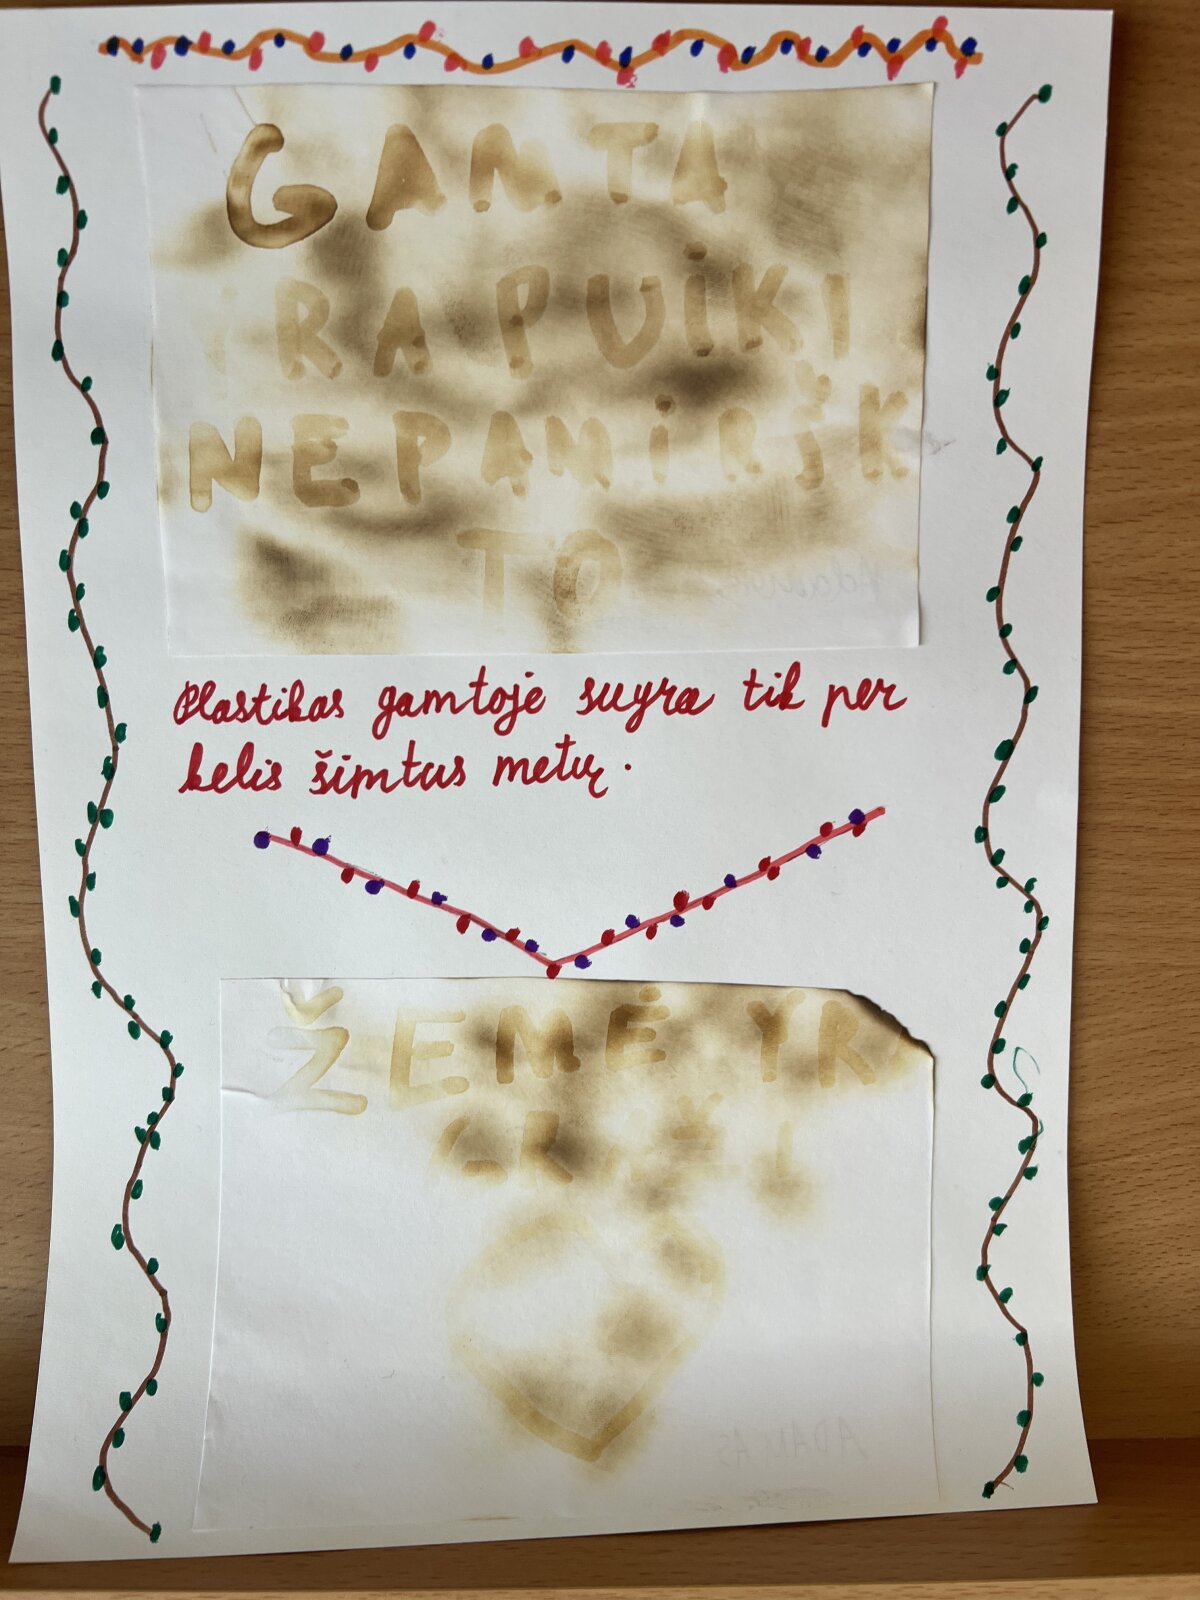 GAMTA
YRA PUiKI
NEPAMiRŠK
TO
Plastikas gamtoje suyra tik per
kelis šimtus metų.
ŽEMĖ YRA